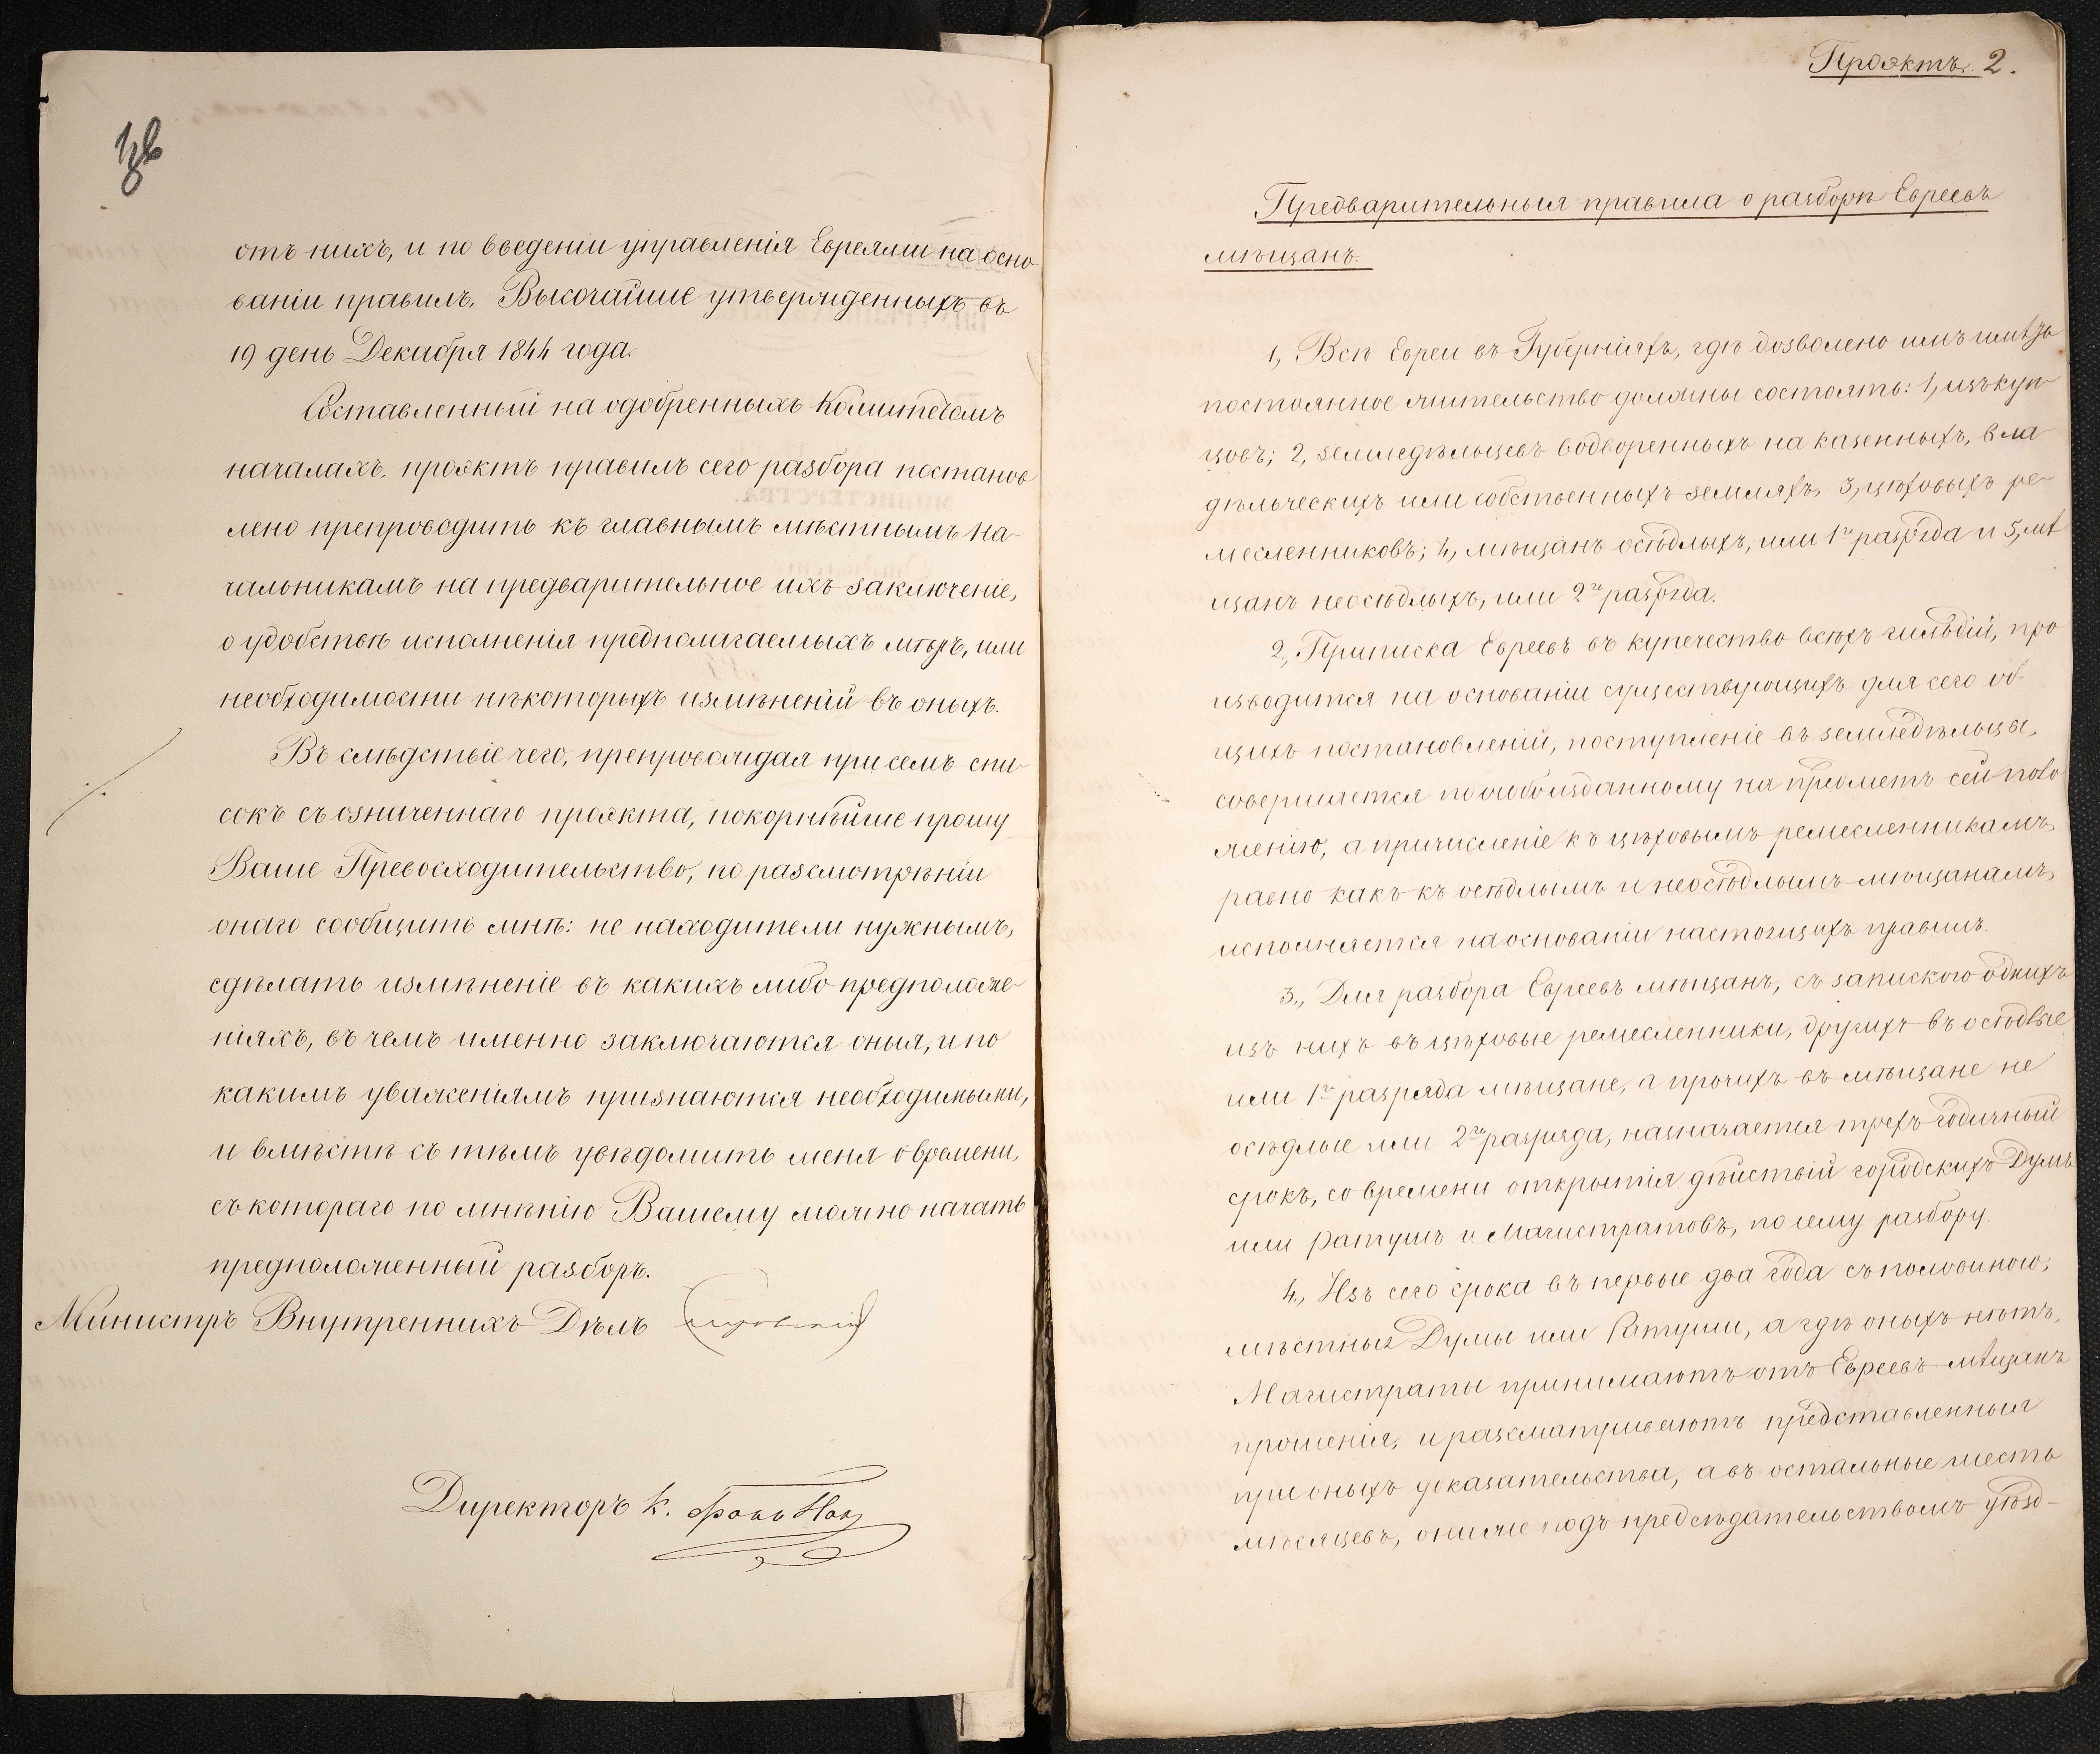 отъ нихъ, и по введеніи управленія Евреями на осно
ваніи правилъ, Высочайше утвержденныхъ въ
19 день Декабря 1844 года.
Составленный на одобренныхъ Комитетомъ
началахъ, проэктъ правилъ сего разбора постанов
лено препроводить къ главнымъ мѣстнымъ На-
чальникамъ на предварительное ихъ заключеніе,
о удобствѣ исполненія предполагаемыхъ мѣръ, или
необходимости нѣкоторыхъ измѣненій въ оныхъ.
Въ слѣдствіе чего, препровождая при семъ спи-
сокъ съ означеннаго проэкта, покорнѣйше прошу
Ваше Превосходительство, по разсмотрѣніи
онаго сообщить мнѣ: не находители нужнымъ,
сдѣлать измѣненіе въ какихъ либо предположе-
ніяхъ, въ чемъ именно заключаются оныя, и по
какимъ уваженіямъ признаются необходимыми,
и вмѣстѣ съ тѣмъ увѣдомить меня о времени,
съ котораго по мнѣнію Вашему можно начать
предположенный разборъ.
Министръ Внутреннихъ Дѣлъ
Директоръ К.
Проэктъ. 2.
Предварительныя правила о разборѣ Евреевъ
мѣщанъ.
1, Всѣ Евреи въ Губерніяхъ, гдѣ дозволено имъ имѣть
постоянное жительство должны состоять: 1, изъ куп-
цовъ; 2, земледѣльцевъ водворенныхъ на казенныхъ, вла
дѣльческихъ или собственныхъ земляхъ, 3, цѣховыхъ ре-
месленниковъ; 4, мѣщанъ осѣдлыхъ, или 1го разряда и 5, мѣ
щанъ неосѣдлыхъ, или 2го разряда.
2, Приписка Евреевъ въ купечество всѣхъ гильдій, про
изводится на основаніи существующихъ для сего об-
щихъ постановленій, поступленіе въ земледѣльцы,
совершается по особо изданному на предметъ сей поло
женію, а причисленіе къ цѣховымъ ремесленникамъ,
равно какъ къ осѣдлымъ и неосѣдлымъ мѣщанамъ,
исполняется на основаніи настоящихъ правилъ.
3., Для разбора Евреевъ мѣщанъ, съ запискою однихъ
изъ нихъ въ цѣховые ремесленники, другихъ въ осѣдлые
или 1го разряда мѣщане, а прочихъ въ мѣщане не
осѣдлые или 2го разряда, назначается трехъ годичный
срокъ, со времени открытія дѣйствій городскихъ Думъ
или Ратушъ и Магистратовъ, по сему разбору.
4., Изъ сего срока въ первые два года съ половиною,
мѣстныя Думы или Ратуши, а гдѣ оныхъ нѣтъ,
Магистраты принимаютъ отъ Евреевъ мѣщанъ
прошенія, и разсматриваютъ представленныя
при оныхъ доказательства, а въ остальные шесть
мѣсяцевъ, они же подъ предсѣдательствомъ уѣзд-